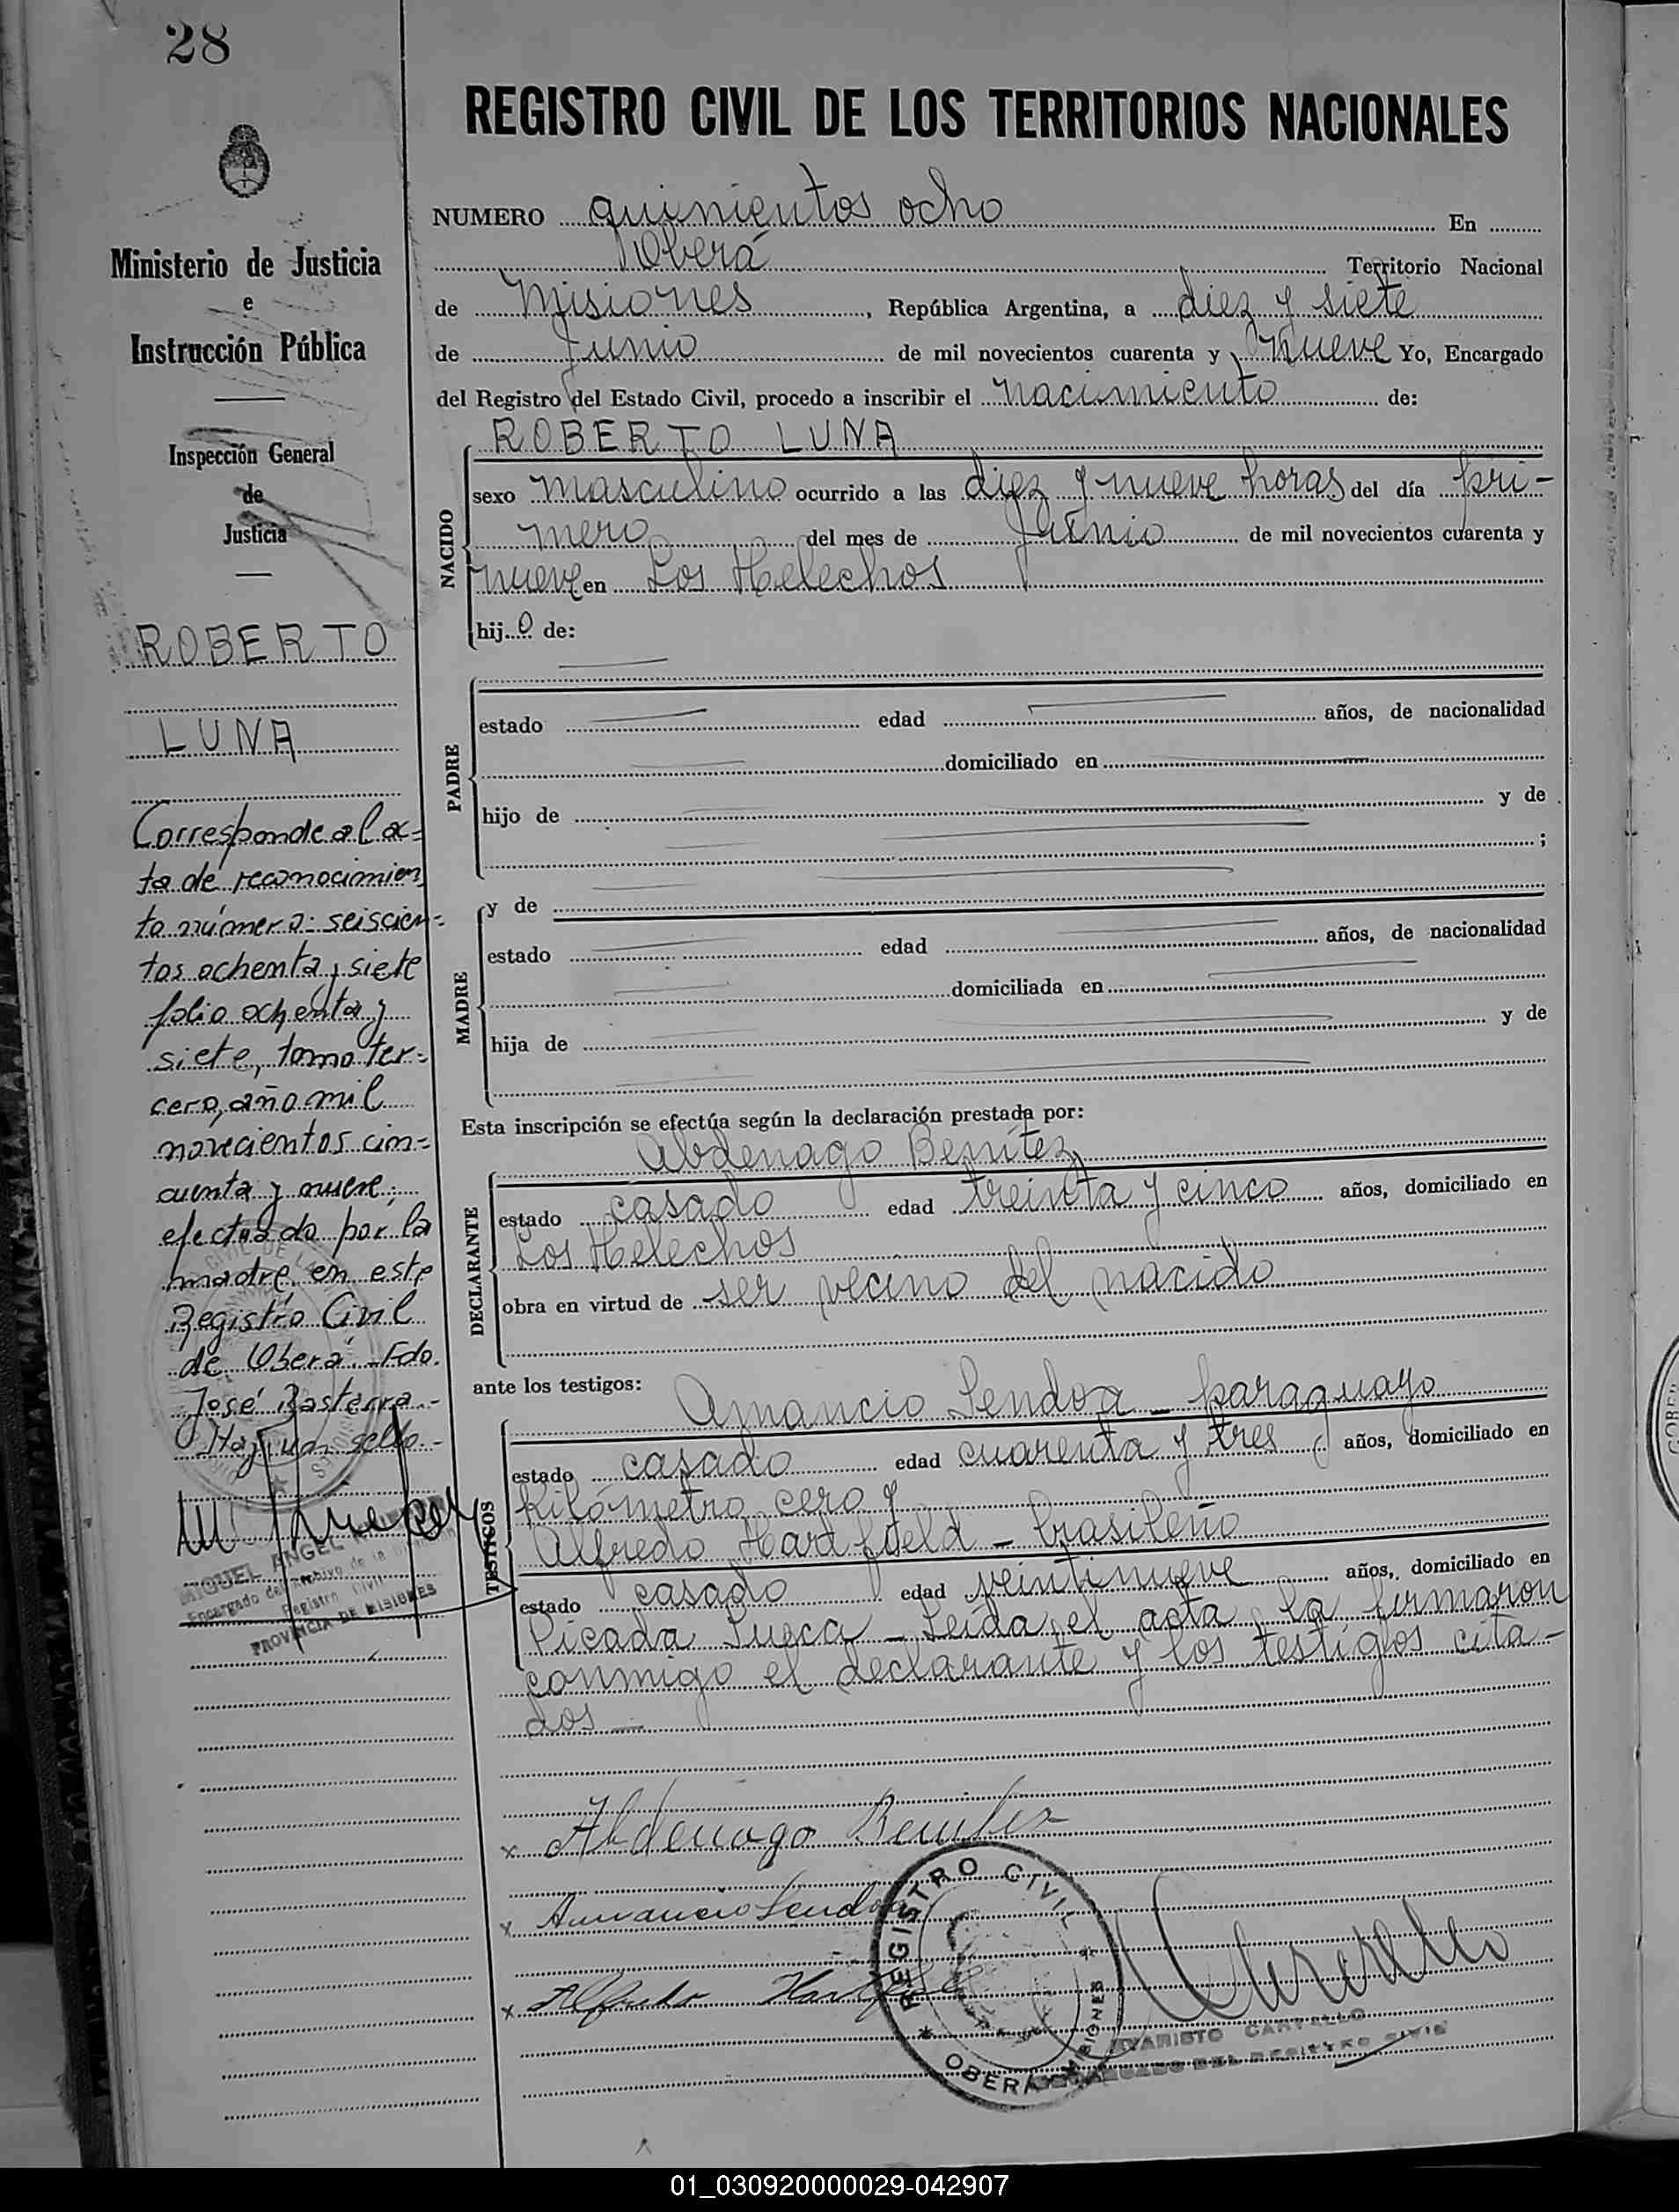 28
Ministerio de Justicia
e
Instrucción Pública
Inspección General
de
Justicia
ROBERTO
LUNA
Corresponde al ac=
ta de reconocimien
to número: seiscien=
tos ochenta y siete
folio ochenta y
siete, tomo ter=
cero, año mil
novecientos cin=
cuenta y nueve,
efectuado por la
madre en este
Registro Civil
de Oberá. Fdo.
José Basterra.-
Hay un sello.-
MIGUEL ANGEL
Encargado del Archivo de la
Registro Civil
PROVINCIA DE MISIONES
REGISTRO CIVIL DE LOS TERRITORIOS NACIONALES
NUMERO quinientos ocho En
Oberá Territorio Nacional
de Misiones, República Argentina, a diez y siete
de Junio de mil novecientos cuarenta y nueve Yo, Encargado
del Registro del Estado Civil, procedo a inscribir el nacimiento de:
ROBERTO LUNA
NACIDO
sexo masculino ocurrido a las diez y nueve horas del día pri-
mero del mes de Junio de mil novecientos cuarenta y
nueve en Los Helechos
hijo de:
PADRE
estado edad años, de nacionalidad
domiciliado en
hijo de y de
;
MADRE
y de
estado edad años, de nacionalidad
domiciliada en
hija de y de
Esta inscripción se efectúa según la declaración prestada por:
Abdenago Benítez
DECLARANTE
estado casado edad treinta y cinco años, domiciliado en
Los Helechos
obra en virtud de ser vecino del nacido
ante los testigos:
Amancio Sendoa - paraguayo
TESTIGOS
estado casado edad cuarenta y tres años, domiciliado en
Kilómetro cero y
Alfredo Hartfield - brasileño
estado casado edad veintinueve años, domiciliado en
Picada Sueca - Leída el acta la firmaron
conmigo el declarante y los testigos cita-
dos -
x Abdenago Benitez
x Amancio Sendoa
x Alfredo
REGISTRO CIVIL
OBERA MISIONES
EVARISTO CARVALLO
ENCARGADO DEL REGISTRO CIVIL
01_030920000029-042907